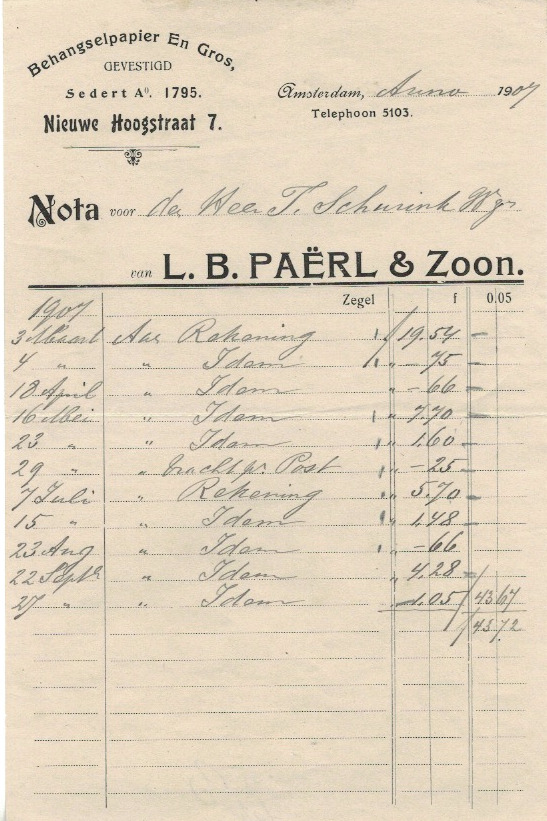 Behangselpapier En Gros,
GEVESTIGD
Sedert A⁰. 1795.
Nieuwe Hoogstraat 7.
Amsterdam, Anno 1907
Telephoon 5103.
Nota voor den Heer T. Schurink Wgr
van L. B. PAËRL & Zoon.
Zegel f 0.05
1907
3 Maart Aan Rekening f 19.54 —
4 " " Idam " — 75 —
18 April " Idam " — 66 —
16 Mei " Idam " 7.70 —
23 " " Idam " 1.60 —
29 " " Vracht pr Post " — 25 —
7 Juli " Rekening " 5.70 —
15 " " Idam " 1.48 —
23 Aug " Idam " — 66
22 Septr " Idam " 4.28 —
27 " " Idam 1.05 f 43.67
f 43.72